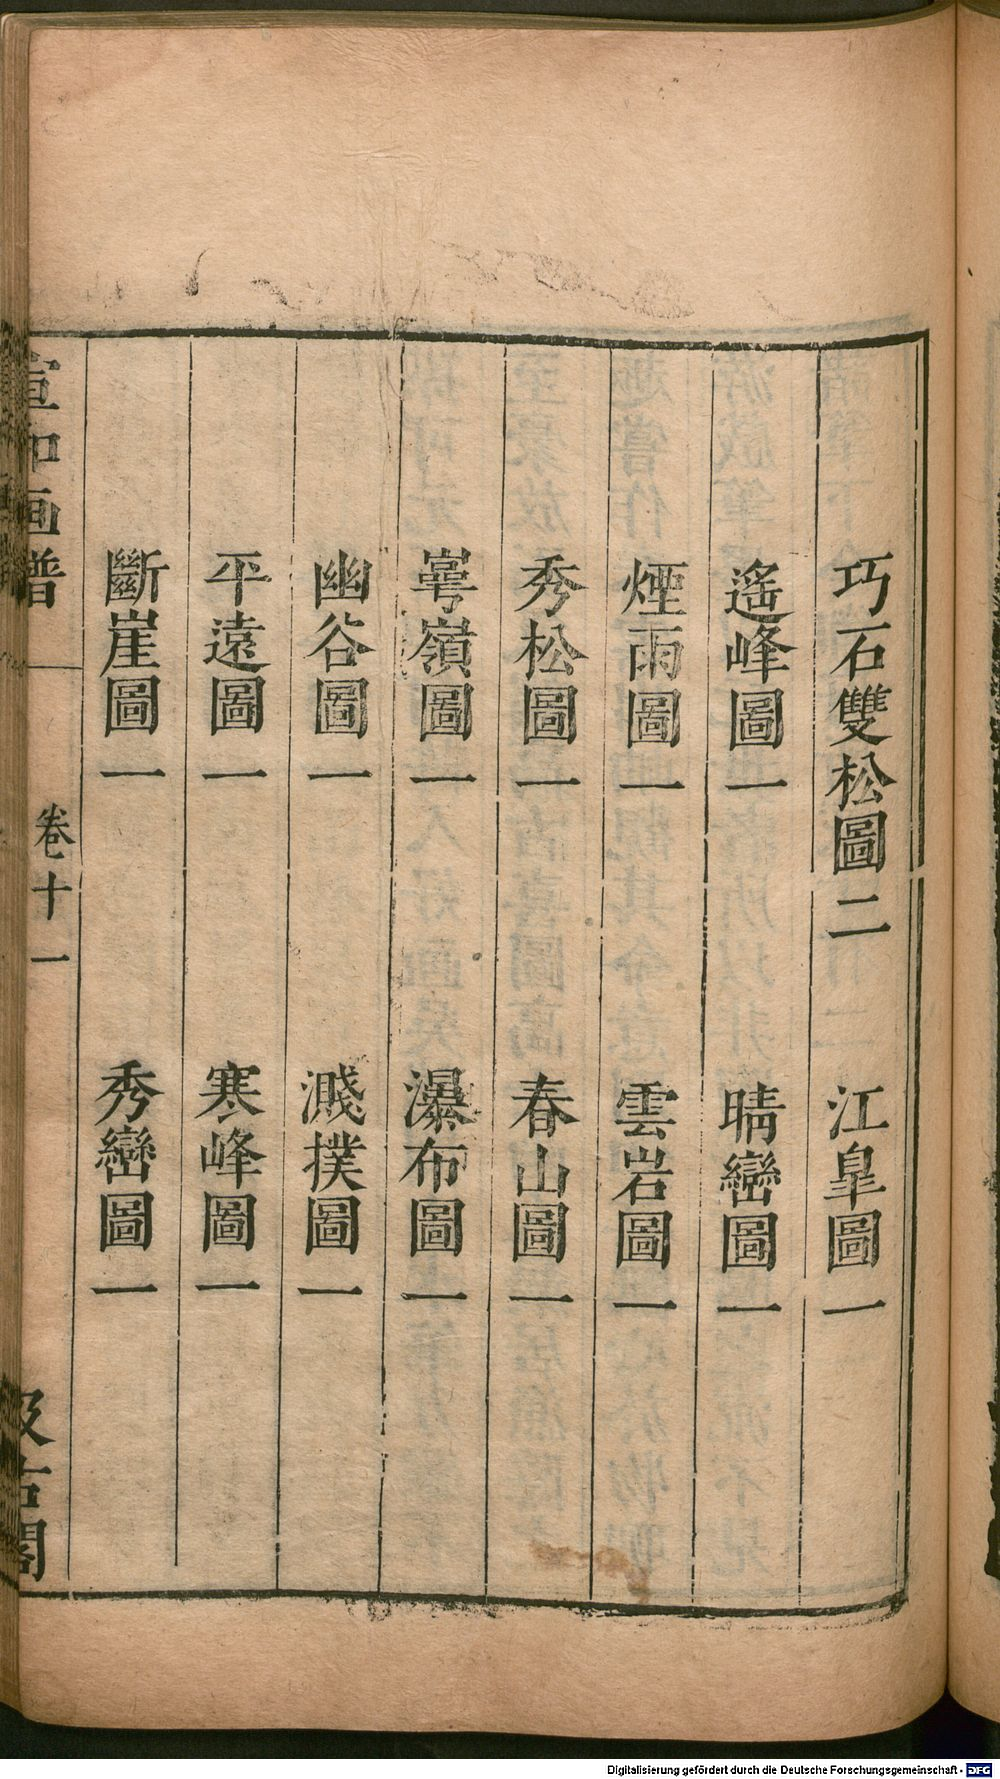 巧石雙松圖二　江臯圖一
遙峰圖一　晴巒圖一
煙雨圖一　雲岩圖一
秀松圖一　春山圖一
嶀嶺圖一　瀑布圖一
幽谷圖一　濺撲圖一
平遠圖一　寒峰圖一
斷崖圖一　秀巒圖一
宣和画譜　卷十一　汲古閣
Digitalisierung gefördert durch die Deutsche Forschungsgemeinschaft - DFG